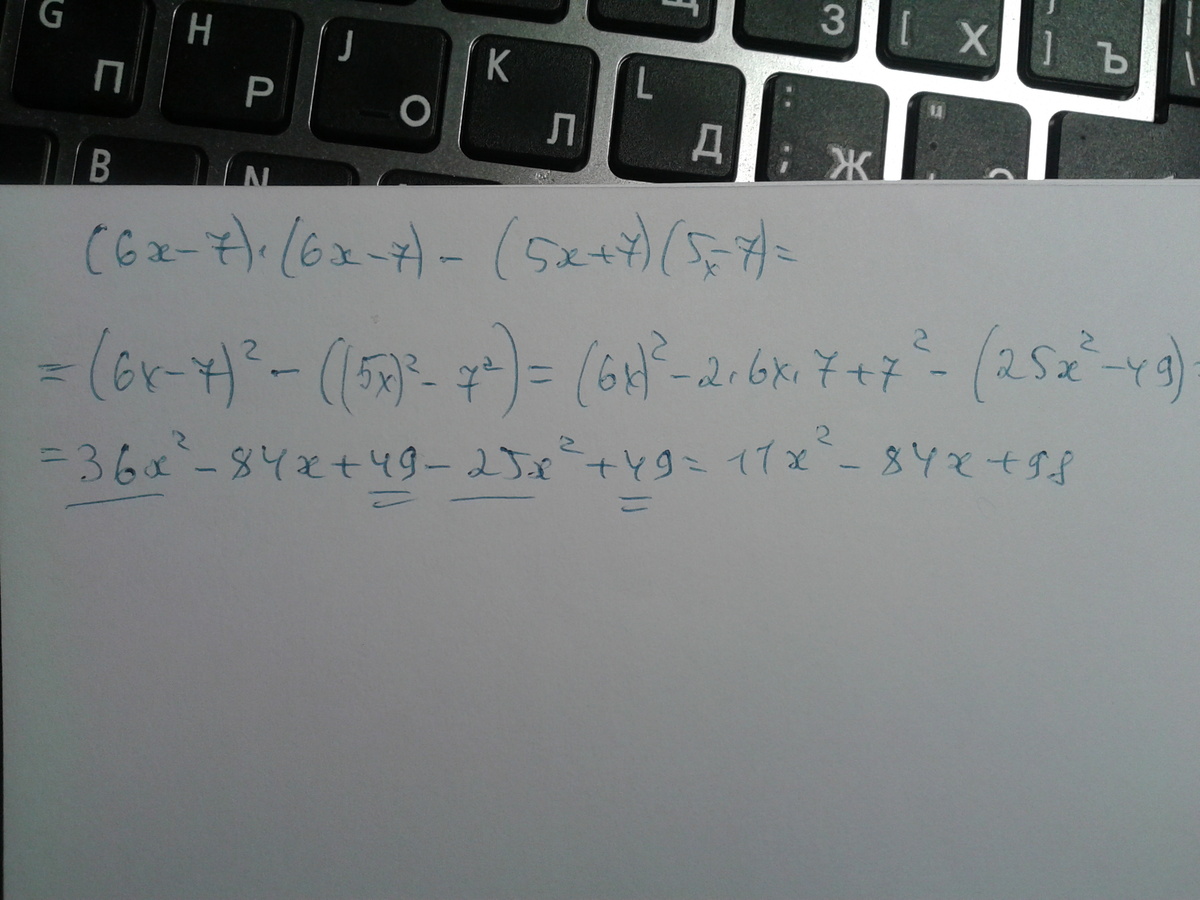 G H J K L З [ Х ] Ъ
П Р О Л Д : ; Ж
B N
(6x-7)·(6x-7)-(5x+7)(5x-7)=
=(6x-7)²-((5x)²-7²)=(6x)²-2·6x·7+7²-(25x²-49)=
=36x²-84x+49-25x²+49=11x²-84x+98